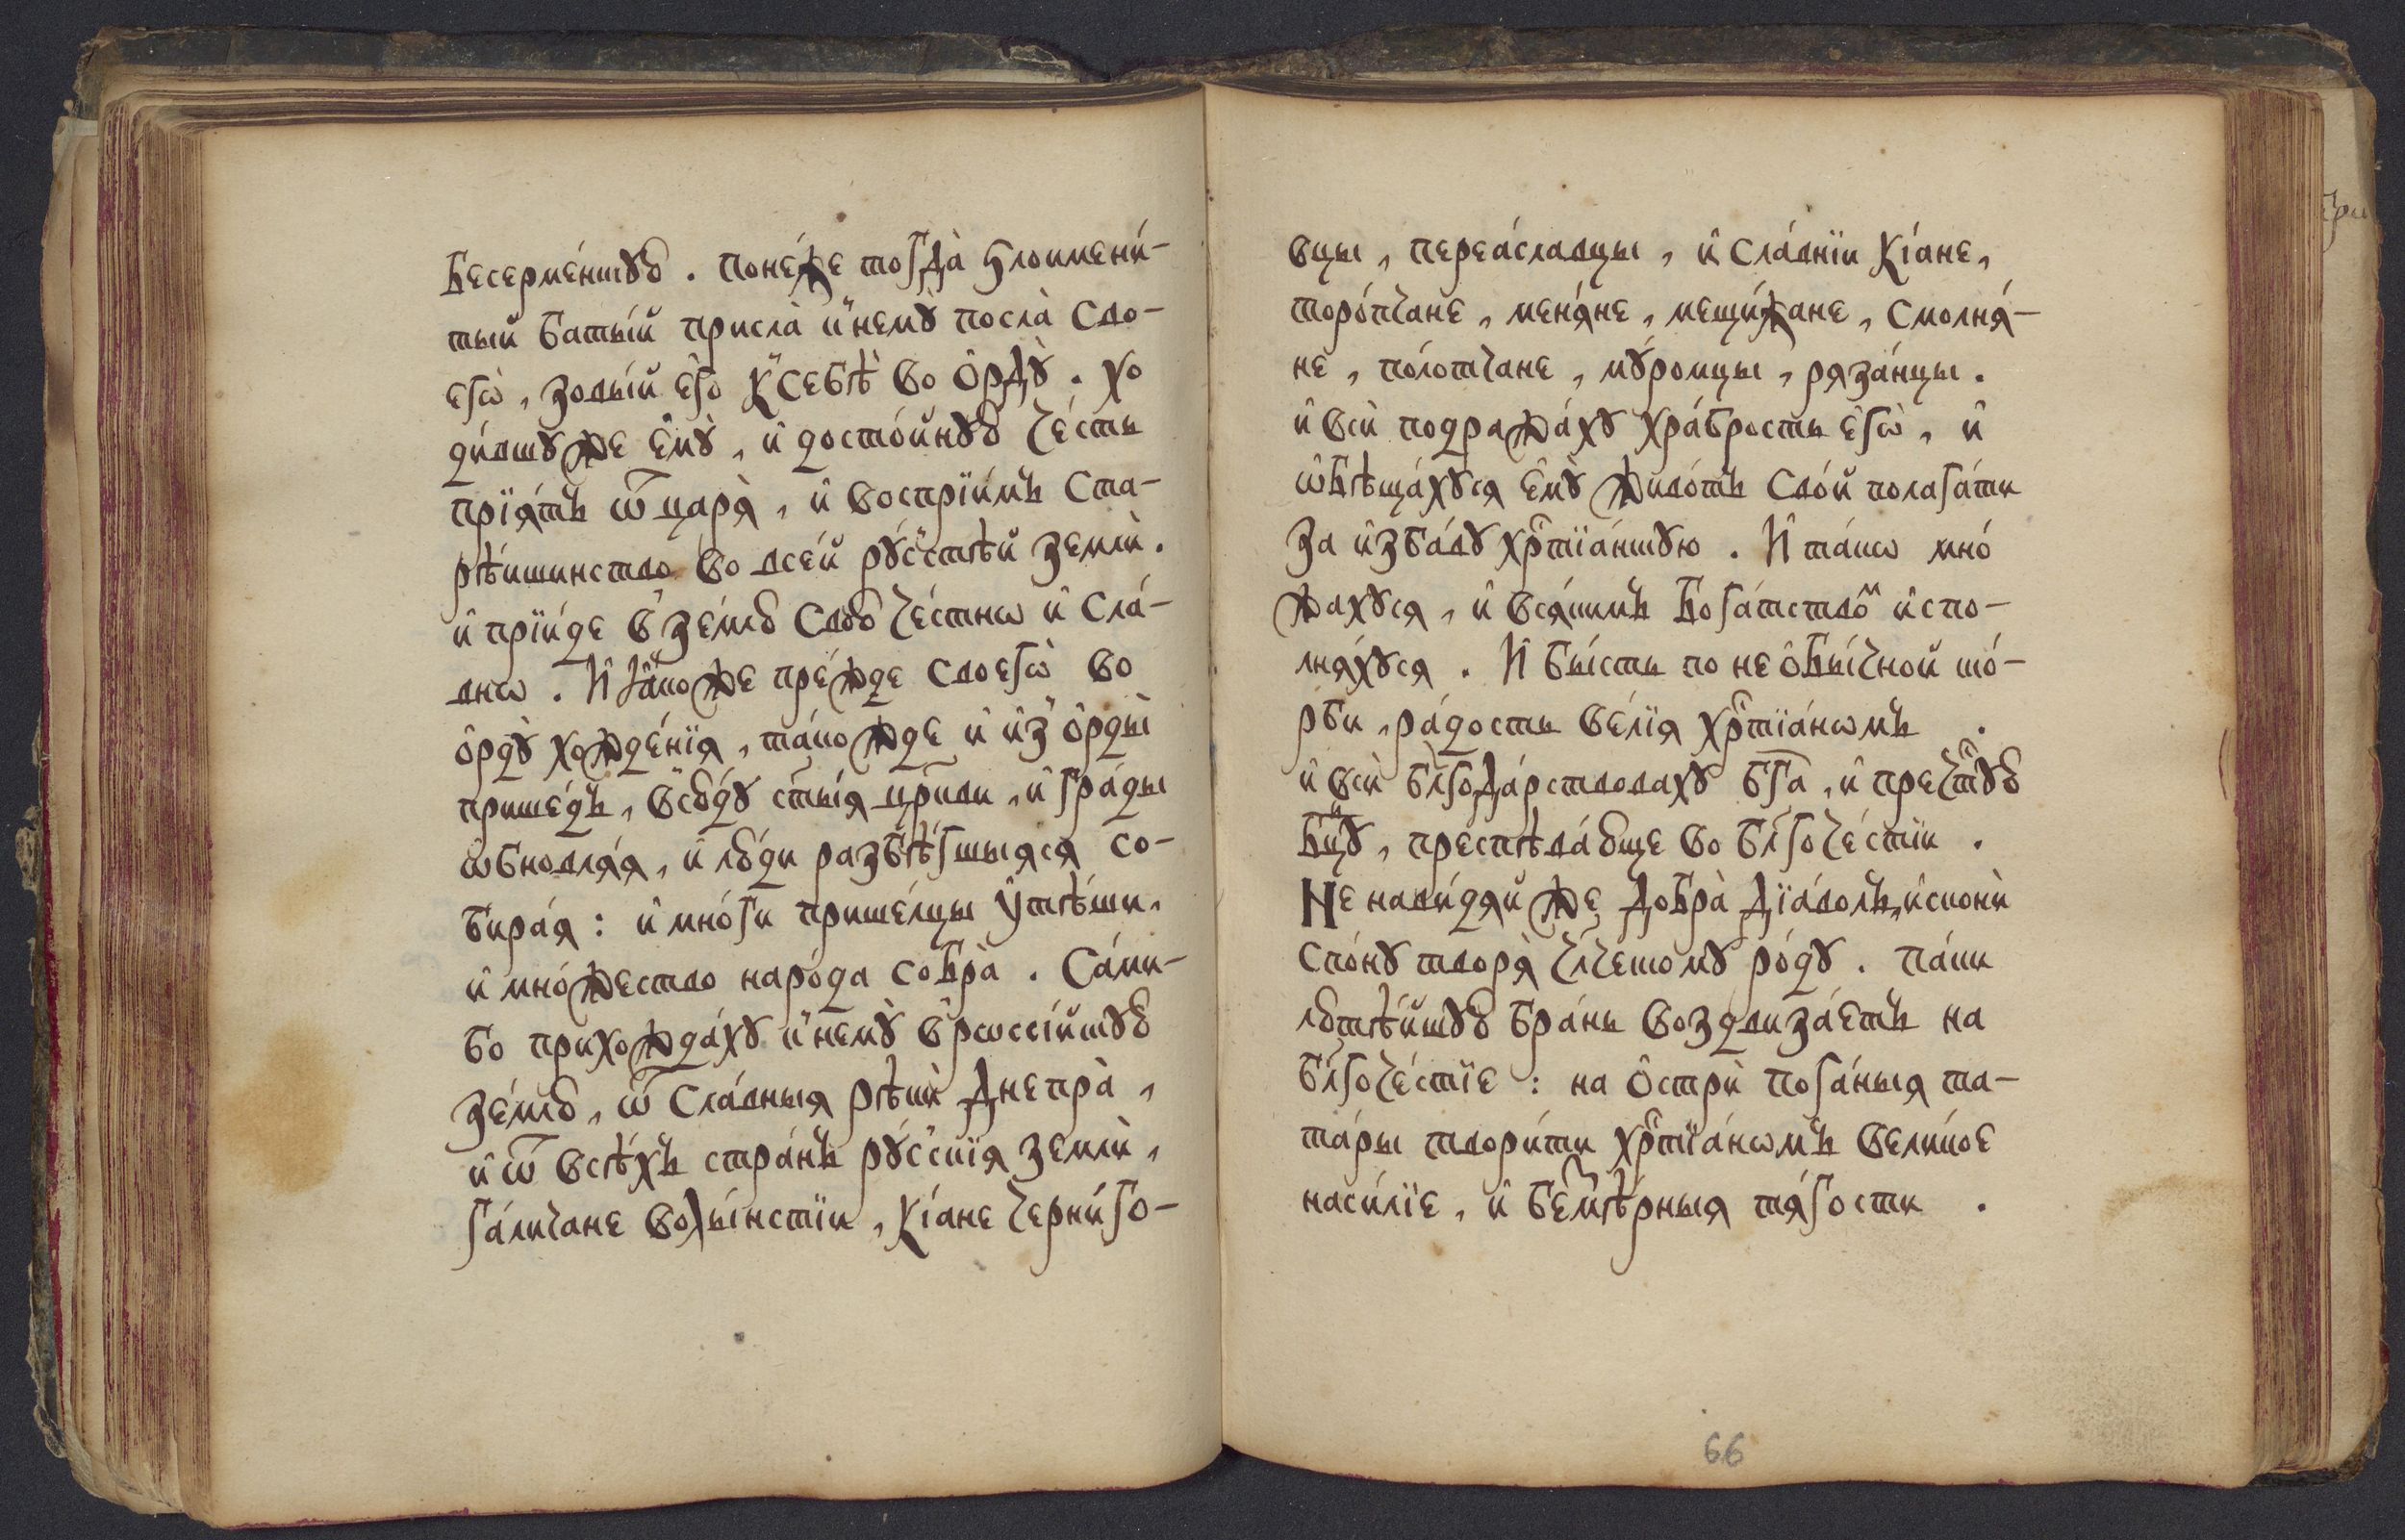 бесерме́нскꙋю . поне́же тогда̀ ѕлоимени́-
тый баты́й присла̀ к̾немꙋ̀ посла̀ сво-
егѡ̀ , зовы́й є҆го̀ к̾себѣ̀ во ѻ҆рдꙋ̀ . хо
ди́вшꙋ же є҆мꙋ̀ , и҆ досто́йнꙋю че́сть
прїя́тъ ѿ царя̀ , и҆ воспрїи́мъ ста-
рѣ́ишинство во всей рꙋ́с̾стѣй землѝ .
и҆ прїи́де в̾ зе́млю свою̀ че́стнѡ и҆ сла́-
внѡ . И҆ ꙗ҆́коже пре́жде своегѡ̀ во
ѻ҆рдꙋ̀ хожде́нїя , та́кожде и҆ и҆з̾ ѻ҆рды̀
прише́дъ , всю́дꙋ ст҃ы́я цр҃кви , и҆ гра́ды
ѡ҆бновля́я , и҆ лю́ди разбѣ́гшыяся со-
бира́я : и҆ мно́ги прише́лцы ᲂу҆тѣ́ши ,
и҆ мно́жество наро́да собра̀ . Са́ми-
бо прихожда́хꙋ к̾немꙋ̀ в̾рѡссі́йскꙋю
зе́млю , ѿ сла́вныя рѣкѝ Днепра̀ ,
и҆ ѿ всѣ́хъ стра́нъ рꙋ́с̾скїя землѝ ,
га́личане волы́нстїи , кі́ане черни́го-
вцы , переа́славцы , и҆ сла́внїи кі́ане ,
торо́пчане , меня́не , мещи́жане , смолня́-
не , по́лотчане , мꙋ́ромцы , ряза́нцы .
и҆ всѝ подража́хꙋ хра́брость є҆гѡ̀ , и҆
ѡ҆бѣща́хꙋся є҆мꙋ̀ живо́тъ сво́й полага́ти
за и҆зба́вꙋ хрⷭ҇тїа́нскꙋю . И҆ та́кѡ мно́
жахꙋся , и҆ вся́кимъ бога́тствоⷨ и҆спо-
лня́хꙋся . И҆ бы́сть по не ѻ҆бы́чной ско́-
рби , ра́дость ве́лїя хрⷭ҇тїа́нѡмъ .
и҆ всѝ бл҃года́рствовахꙋ бг҃а , и҆ пречⷭ҇тꙋю
бцⷣꙋ , преспѣва́юще во бл҃гоче́стїи .
Не нави́дяй же добра̀ дїа́волъ , и҆сконѝ
спо́нꙋ творя̀ чл҃ческомꙋ ро́дꙋ . па́ки
лютѣ́йшꙋю бра́нь воздвиза́етъ на
бл҃гоче́стїе : на ѻ҆стрѝ пога́ныя та-
та́ры твори́ти хрⷭ҇тїа́нѡмъ вели́кое
наси́лїе , и҆ беⷥмѣ́рныя тя́гости .
66